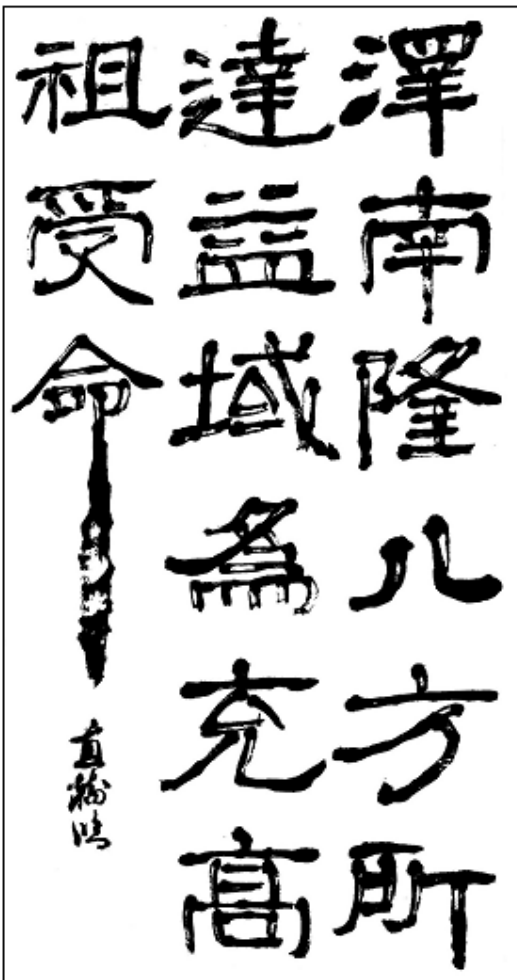 澤南隆八方所
達益域為充高
祖受命